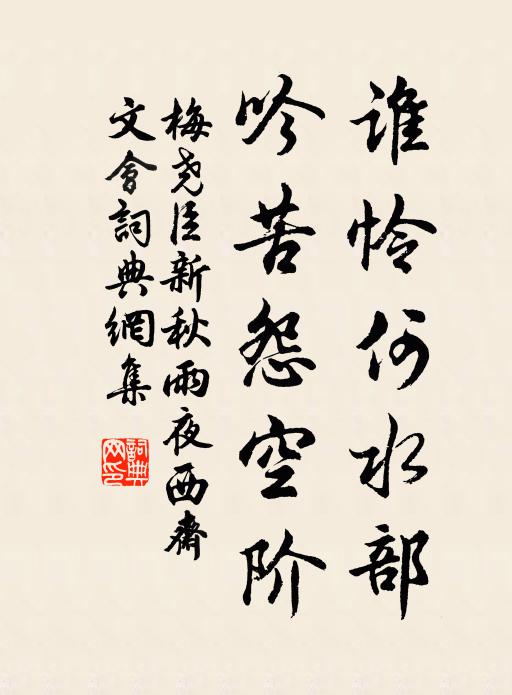 谁怜何水部
吟苦怨空阶
梅尧臣新秋雨夜西斋
文會詞典網集
詞典
网印